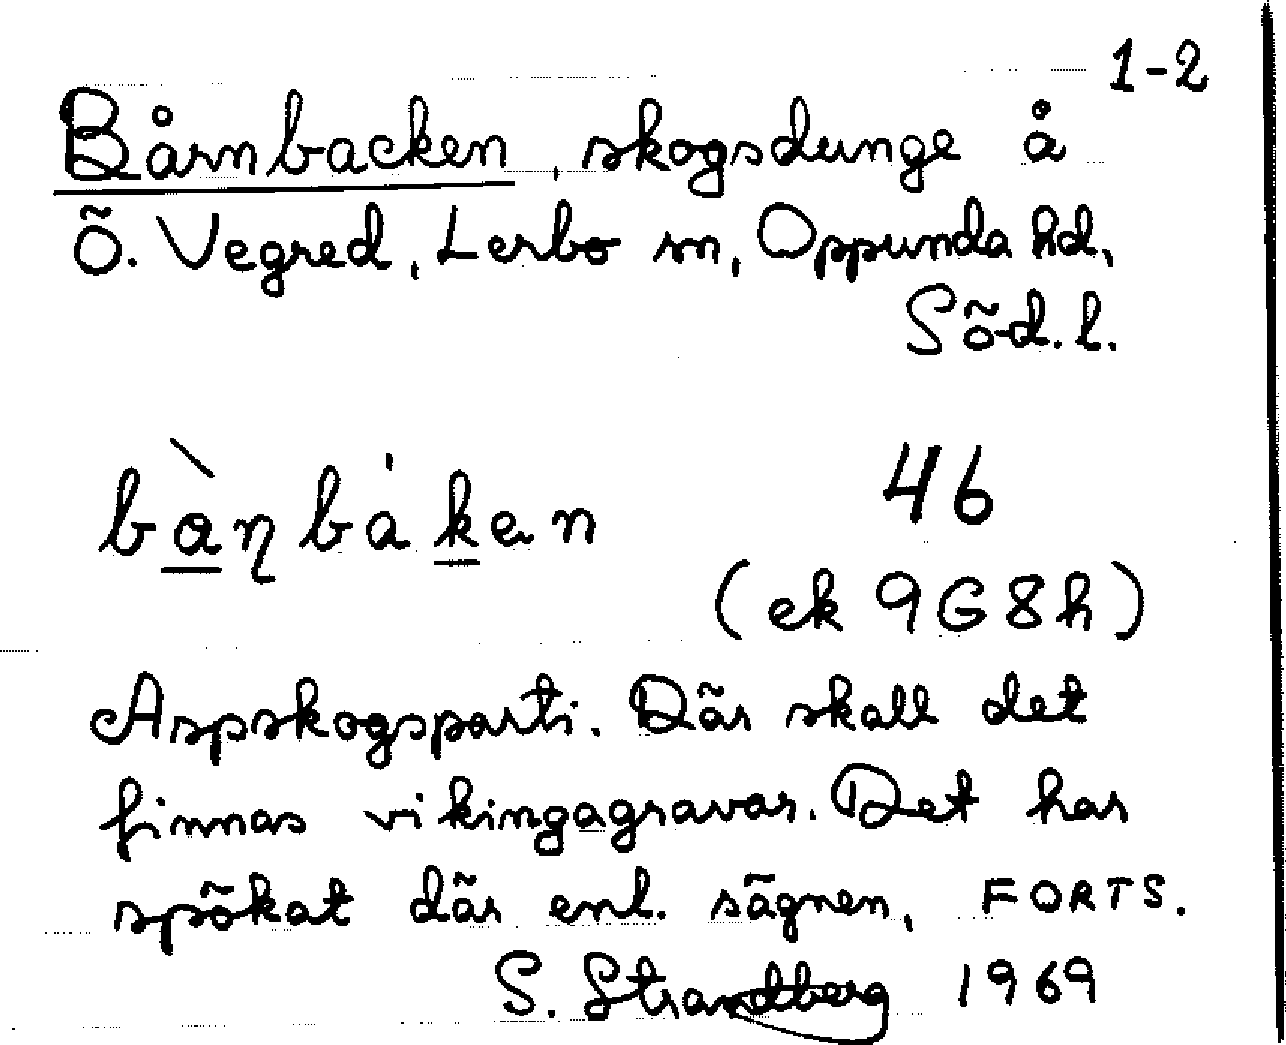 1-2
Bårnbacken, skogsdunge å
Õ. Vegred, Lerbo sn, Oppunda hd,
Sõd.l.
bàɳbàken 46
(ek 9G8h)
Aspskogsparti. Dãr skall det
finnas vikingagravar. Det har
spõkat dãr enl. sãgnen, FORTS.
S. Strandberg 1969